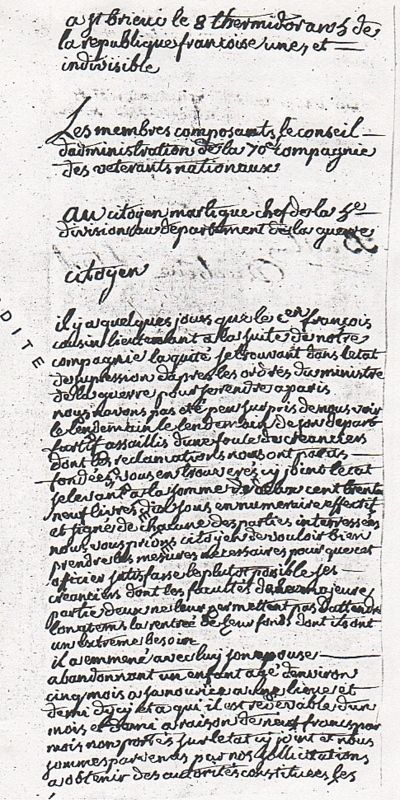 a St brieuc le 8 thermidor an 5 de
la republique francoise une, et
indivisible
Les membres composants le conseil
dadministration de la 70e compagnie
des veterants nationaux
au citoyen martique chef de la 5e
division au departement de la guerre
citoyen
il y a quelques jours que le cen françois
cousin lieutennant a la suite de notre
compagnie la quité se trouvant dans letat
de supression dapres les ordres du ministre
de la guerre pour se rendre a paris
nous navons pas eté peu surpris de nous voir
le lendemain le lendemain de son depart
assaillis dune foule de creanciers
dont les réclamations nous ont parus
fondées vous en trouverés ci joint letat
selevant a la somme de deux cent trente
neuf livres dix sous en numeraire effectif
et signé de chacune des parties interressées
nous vous prions citoyen de vouloir bien
prendre les mesures necessaires pour que cet
officier satisfasse le plutot posible ses
creanciers dont les facultés de la majeure
partie deux ne leur permettent pas dattendre
longtems la rentrée de leur fonds dont ils ont
un extreme besoin
il a emmené avec luy son epouse
abandonnant un enfant agé denviron
cinq mois a sa nourice a une lieue et
demi dycy et a qui il est redevable dun
mois et demi a raison de neuf francs par
mois non portés sur letat ci joint et nous
sommes parvenus par nos sollicitations
a obtenir des autorités constituées les
DITE